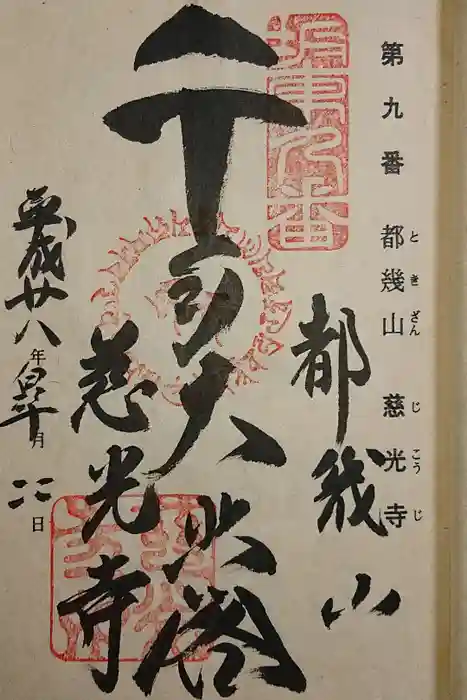 第九番 都幾山 慈光寺
と き ざん じ こう じ
坂東九番
都幾山
千手大悲閣
慈光寺
平成廿八年皐月 日